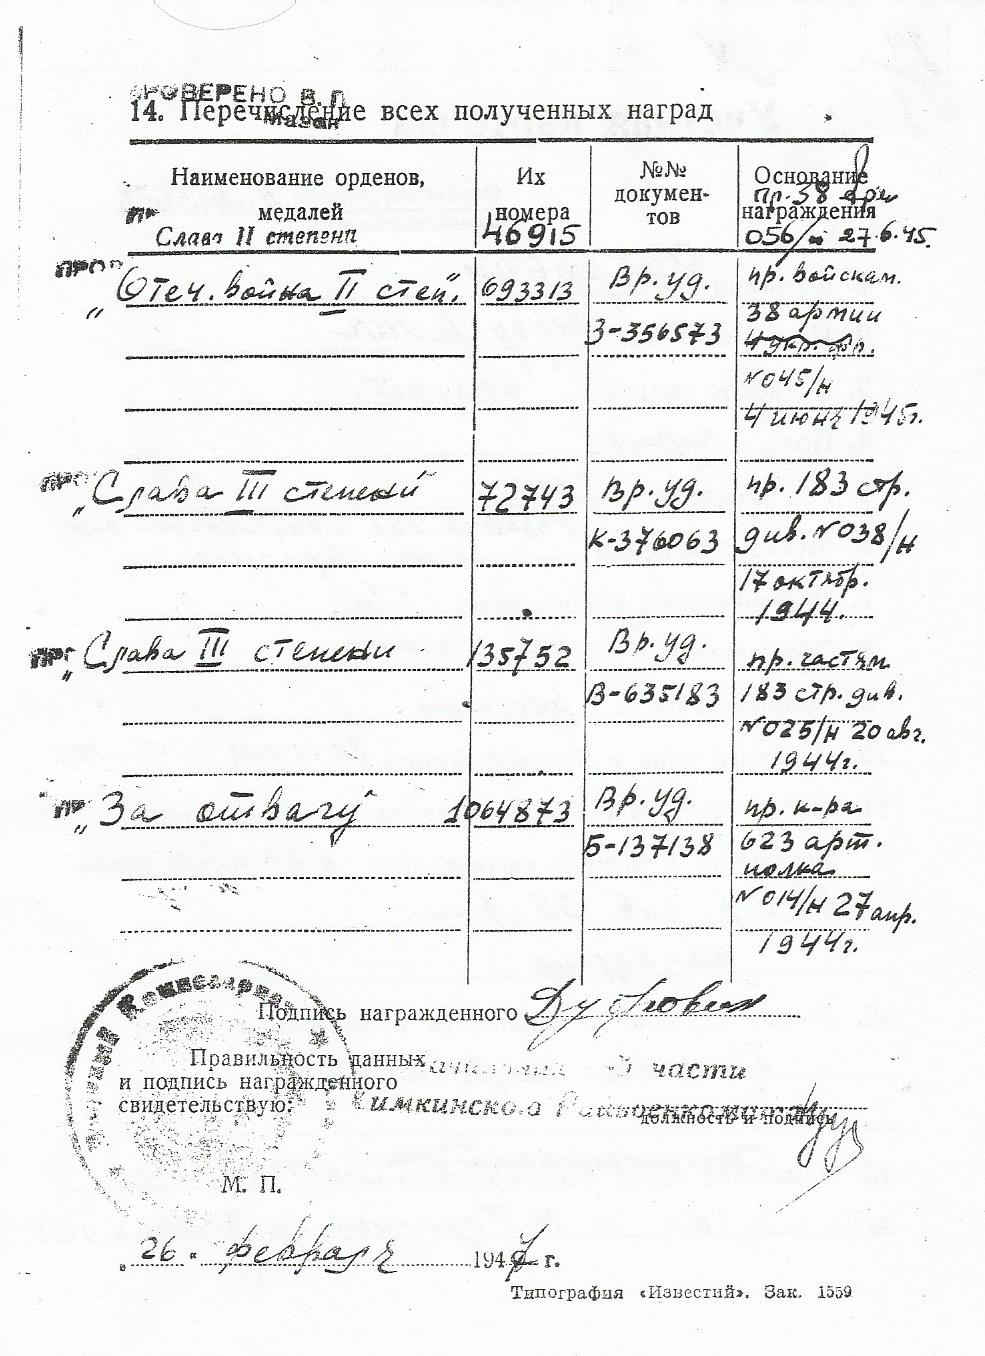 ПРОВЕРЕНО В. Л.
14. Перечисление всех полученных наград
Наименование орденов, медалей
Их номера
№№ документов
Основание награждения
Слава II степени 46915 пр. 38 арм 056/н 27.6.45.
„Отеч. война II степ." 693313 Вр. уд. пр. войскам
З-356573 38 армии
4 укр. фр.
№045/н
4 июня 1945г.
„Слава III степени 72743 Вр. уд. пр. 183 стр.
К-376063 див. №038/н
17 октябр.
1944.
„Слава III степени 135752 Вр. уд. пр. частям
В-635183 183 стр. див.
№025/н 20 авг.
1944г.
„За отвагу 1064873 Вр. уд. пр. к-ра
Б-137138 623 арт.
полка
№014/н 27 апр.
1944г.
Подпись награжденного
Правильность данных
и подпись награжденного
свидетельствую:
части
Химкинского Райвоенкомата
должность и подпись
М. П.
„26" февраля 1947 г.
Типография «Известий». Зак. 1559